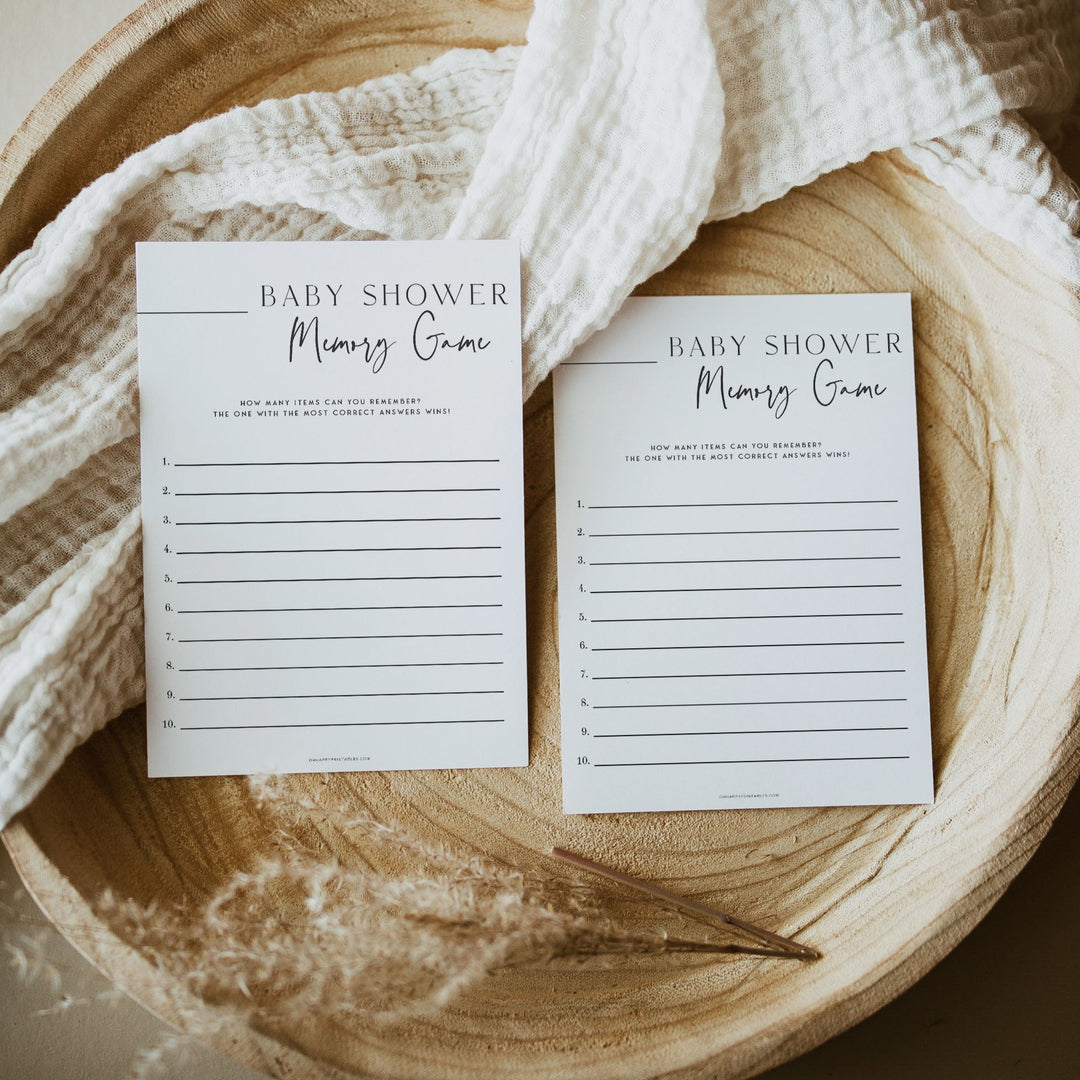 BABY SHOWER
Memory Game
HOW MANY ITEMS CAN YOU REMEMBER?
THE ONE WITH THE MOST CORRECT ANSWERS WINS!
1.
2.
3.
4.
5.
6.
7.
8.
9.
10.
OHHAPPYPRINTABLES.COM
BABY SHOWER
Memory Game
HOW MANY ITEMS CAN YOU REMEMBER?
THE ONE WITH THE MOST CORRECT ANSWERS WINS!
1.
2.
3.
4.
5.
6.
7.
8.
9.
10.
OHHAPPYPRINTABLES.COM